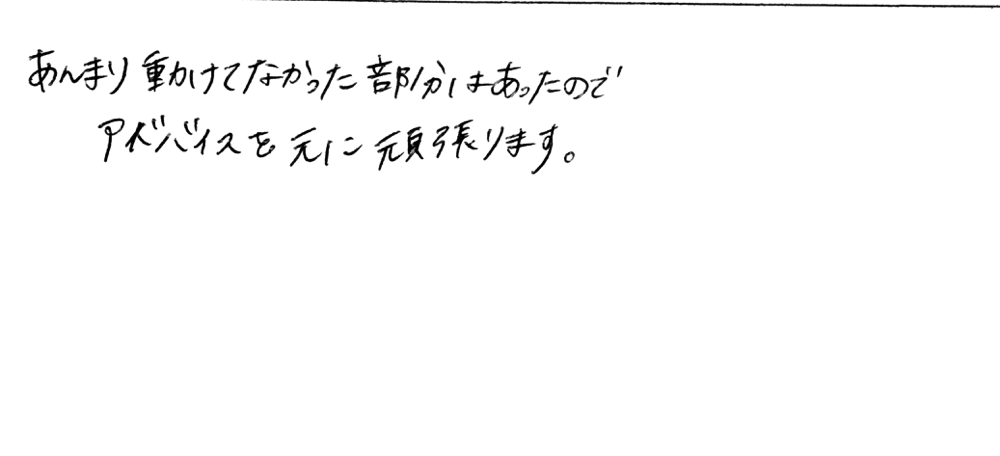 あんまり動けてなかった部分はあったので
アドバイスを元に頑張ります。